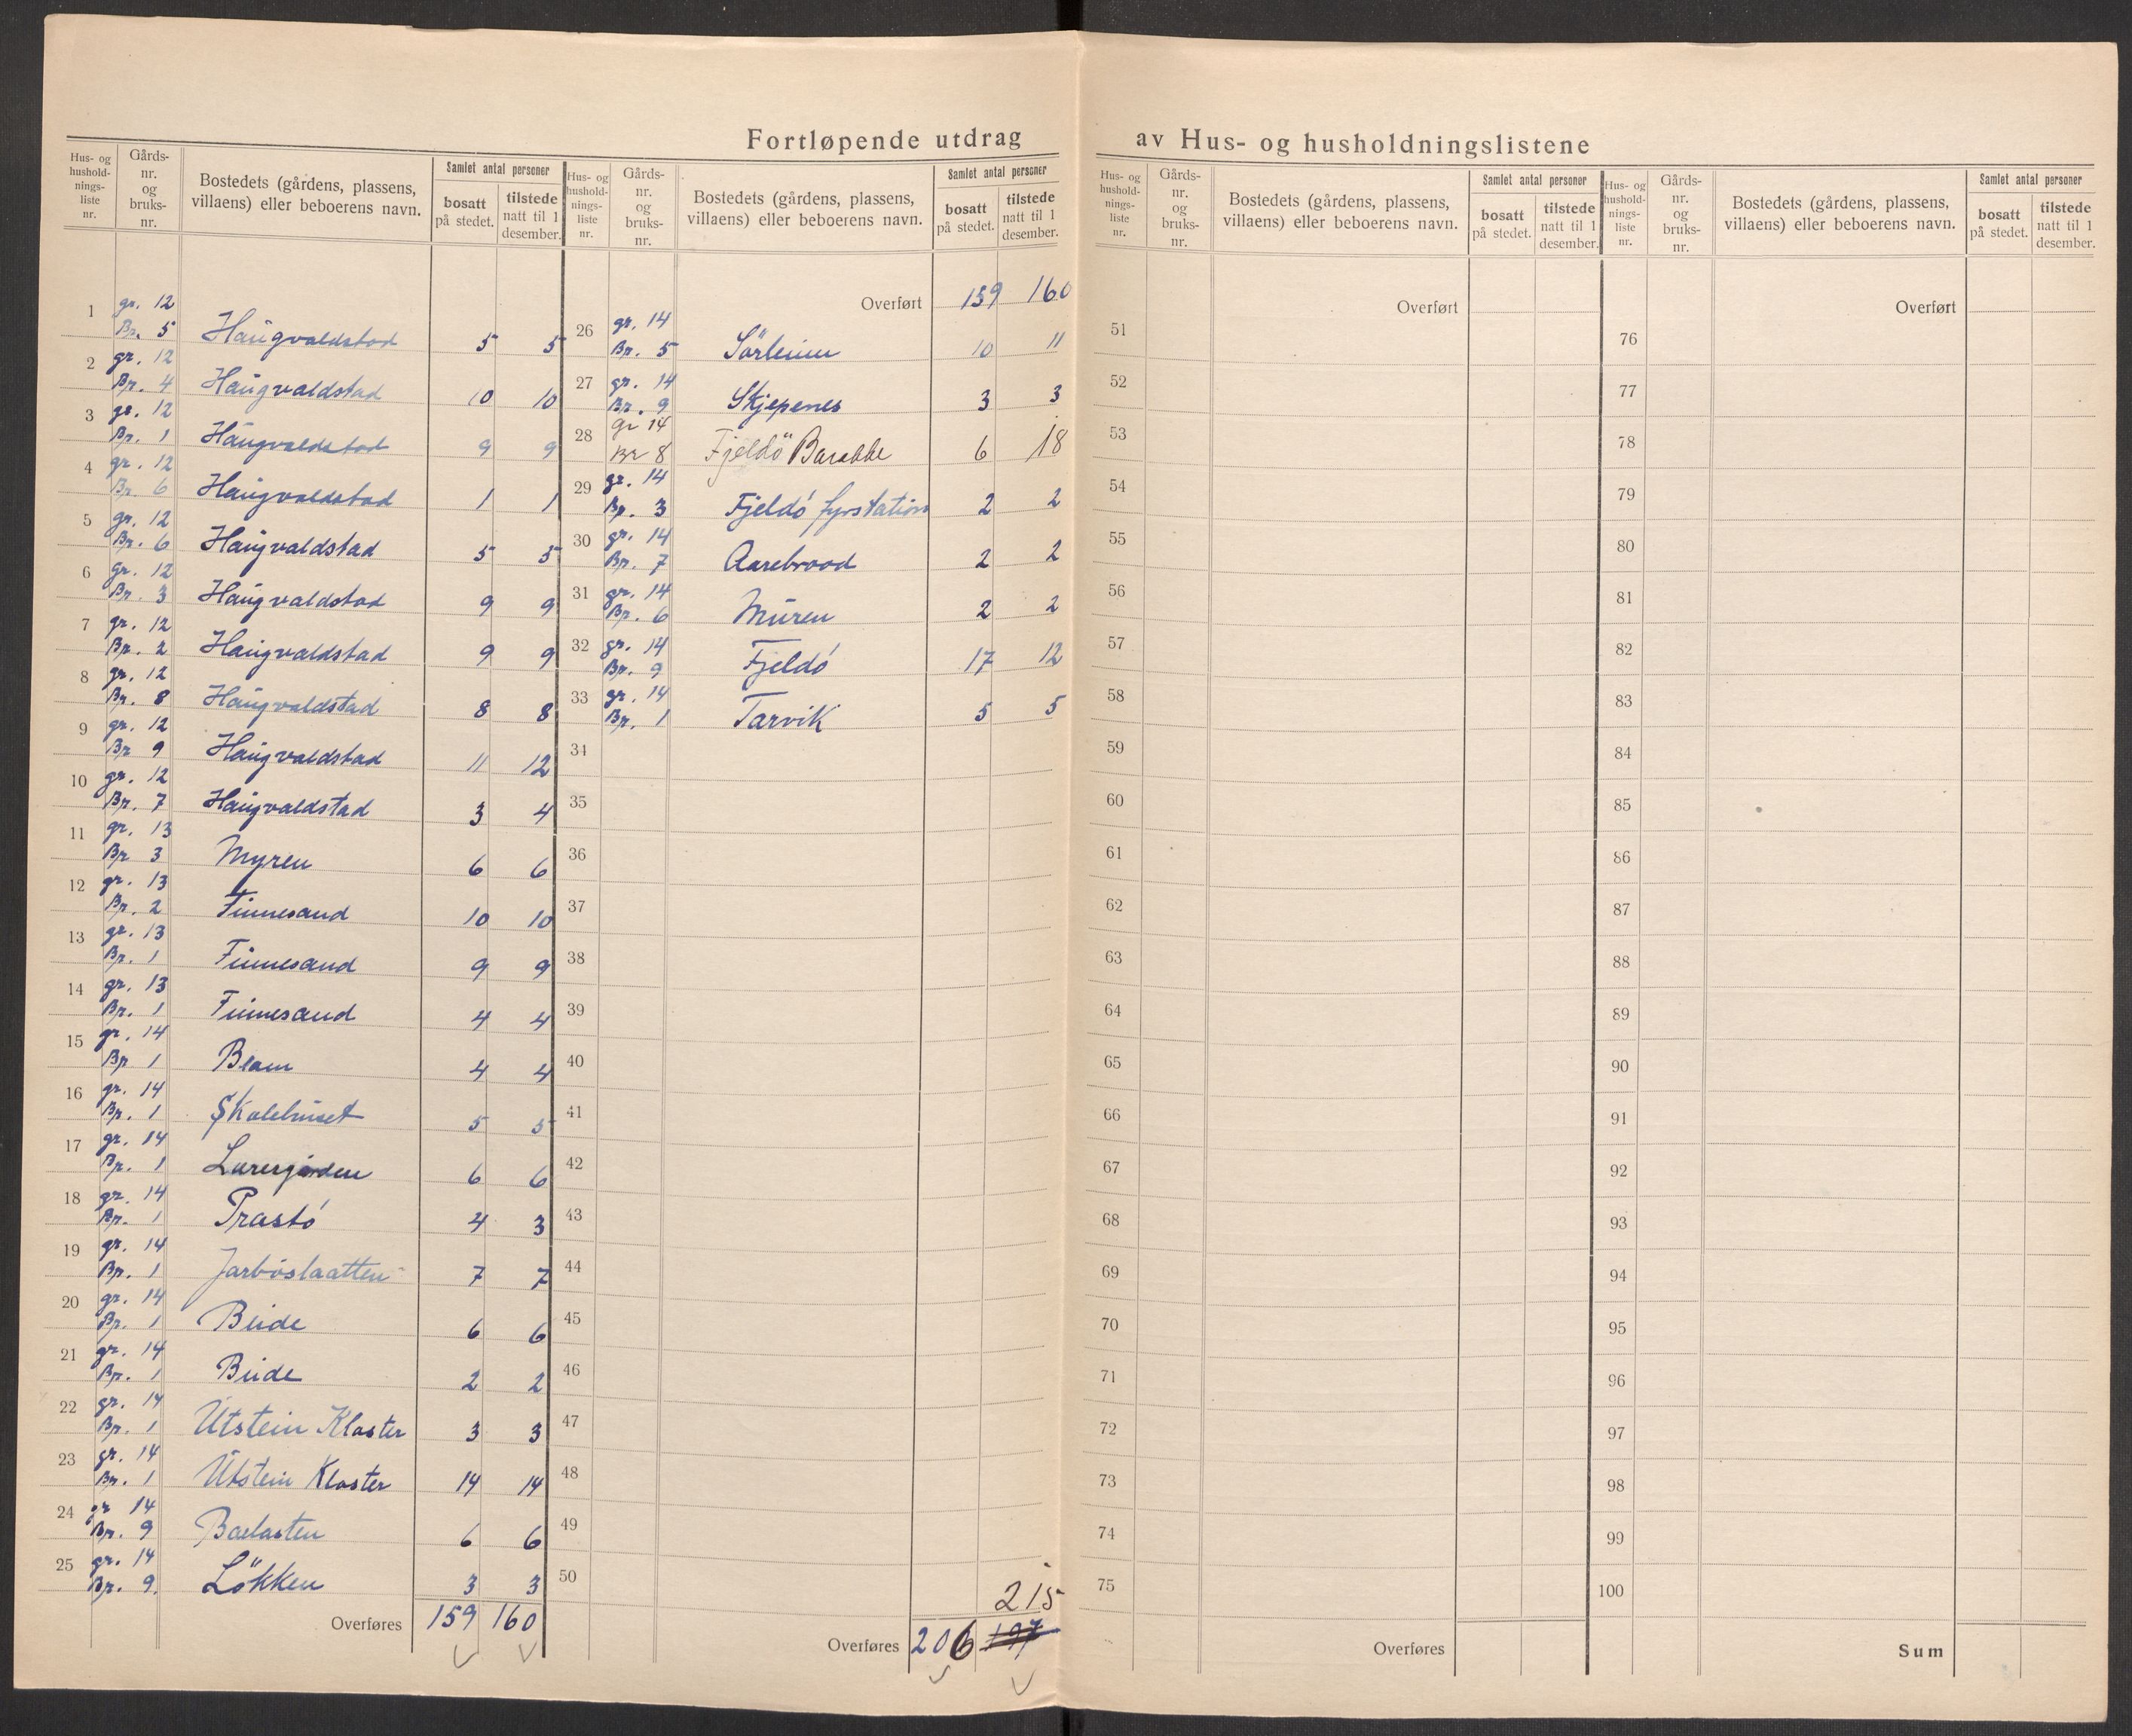 Fortløpende utdrag av Hus- og husholdningslistene
Hus- og hushold-nings-liste nr. | Gårds-nr. og bruks-nr. | Bostedets (gårdens, plassens, villaens) eller beboerens navn. | Samlet antal personer | bosatt på stedet. | tilstede natt til 1 desember.
1 gr. 12 Br. 5 Haugvaldstad 5 5
2 gr. 12 Br. 4 Haugvaldstad 10 10
3 gr. 12 Br. 1 Haugvaldstad 9 9
4 gr. 12 Br. 6 Haugvaldstad 1 1
5 gr. 12 Br. 6 Haugvaldstad 5 5
6 gr. 12 Br. 3 Haugvaldstad 9 9
7 gr. 12 Br. 2 Haugvaldstad 9 9
8 gr. 12 Br. 8 Haugvaldstad 8 8
9 gr. 12 Br 9 Haugvaldstad 11 12
10 gr. 12 Br. 7 Haugvaldstad 3 4
11 gr. 13 Br 3 Myren 6 6
12 gr. 13 Br. 2 Finnesand 10 10
13 gr. 13 Br. 1 Finnesand 9 9
14 gr. 13 Br. 1 Finnesand 4 4
15 gr. 14 Br 1 4 4
16 gr. 14 Br. 1 Skolehuset 5 5
17 gr. 14 Br. 1 6 6
18 gr. 14 Br. 1 Prastö 4 3
19 gr. 14 Br. 1 Jarböslaatten 7 7
20 gr. 14 Br. 1 6 6
21 gr. 14 Br. 1 2 2
22 gr. 14 Br. 1 Utstein Kloster 3 3
23 gr. 14 Br. 1 Utstein Kloster 14 14
24 gr 14 Br. 9 6 6
25 gr. 14 Br. 9. Lökken 3 3
Overføres 159 160
Hus- og hushold-nings-liste nr. | Gårds-nr. og bruks-nr. | Bostedets (gårdens, plassens, villaens) eller beboerens navn. | Samlet antal personer | bosatt på stedet. | tilstede natt til 1 desember.
Overført 159 160
26 gr. 14 Br. 5 10 11
27 gr. 14 Br. 9 Skjepenes 3 3
28 Gr 14 Br 8 Fjeldö Barakke 6 18
29 gr. 14 Br. 3 Fjeldö fyrstation 2 2
30 gr. 14 Br. 7 Aarebrood 2 2
31 gr. 14 Br. 6 Muren 2 2
32 gr. 14 Br. 9 Fjeldö 17 12
33 gr. 14 Br. 1 Tarvik 5 5
34
35
36
37
38
39
40
41
42
43
44
45
46
47
48
49
50
215
Overføres 206 197
Hus- og hushold-nings-liste nr. | Gårds-nr. og bruks-nr. | Bostedets (gårdens, plassens, villaens) eller beboerens navn. | Samlet antal personer | bosatt på stedet. | tilstede natt til 1 desember.
Overført
51
52
53
54
55
56
57
58
59
60
61
62
63
64
65
66
67
68
69
70
71
72
73
74
75
Overføres
Hus- og hushold-nings-liste nr. | Gårds-nr. og bruks-nr. | Bostedets (gårdens, plassens, villaens) eller beboerens navn. | Samlet antal personer | bosatt på stedet. | tilstede natt til 1 desember.
Overført
76
77
78
79
80
81
82
83
84
85
86
87
88
89
90
91
92
93
94
95
96
97
98
99
100
Sum